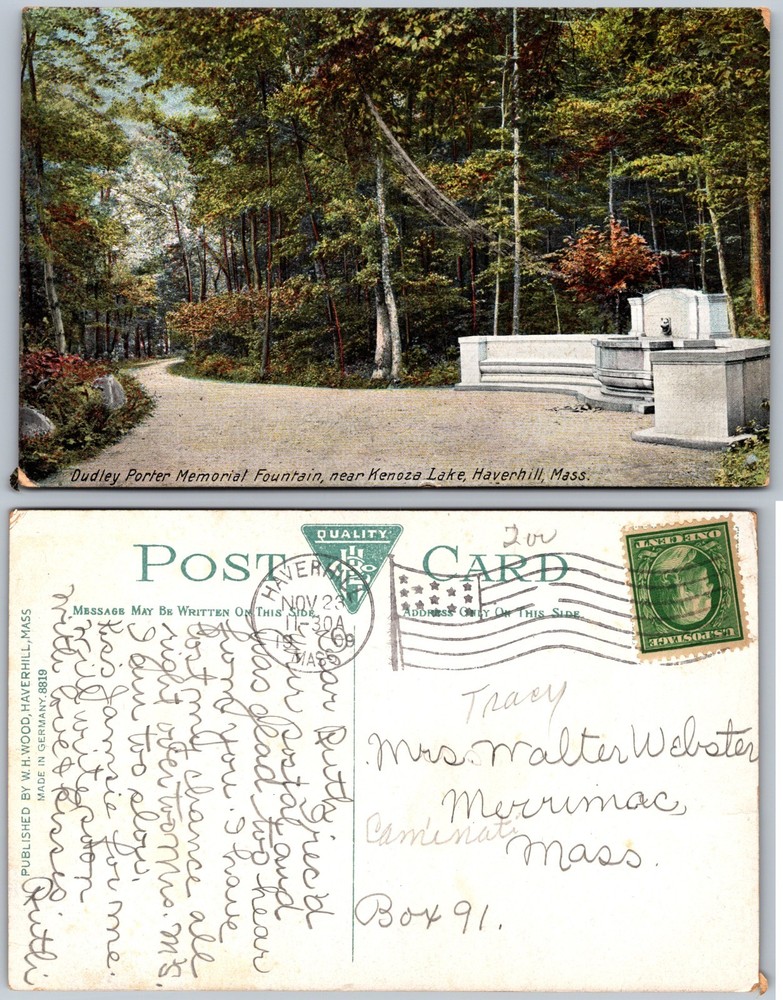 Dudley Porter Memorial Fountain, near Kenoza Lake, Haverhill, Mass.
POST CARD
QUALITY
MESSAGE MAY BE WRITTEN ON THIS SIDE.
ADDRESS ONLY ON THIS SIDE.
HAVERHILL
NOV 23
11-30A
1909
MASS
ONE CENT
U.S. POSTAGE
PUBLISHED BY W. H. WOOD, HAVERHILL, MASS
MADE IN GERMANY. 8819
Tracy
Mrs. Walter Webster
Merrimac,
Mass.
Box 91.
Dear Ruth, I rec'd
your postal and
was glad to hear
from you. I have
lost my chance all
right over to Mrs. M's.
I am too slow.
Kiss Jamsie for me.
Will write soon
with love & kisses
Ruth